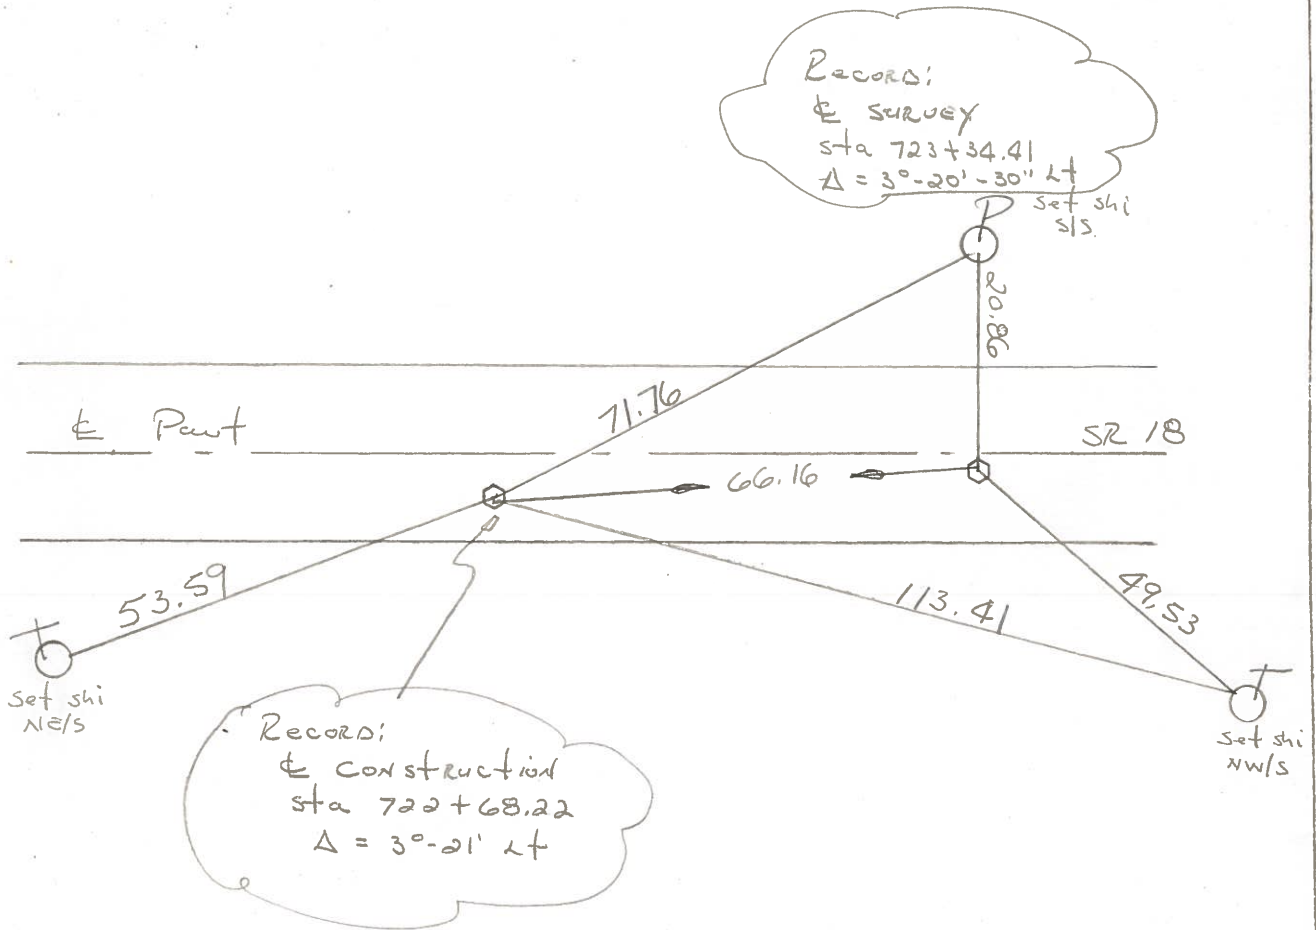 Record:
℄ SURVEY
sta 723+34.41
Δ = 3°-20'-30" Lt
P
Set shi
S/S
20.86
71.76
℄ Pavt
SR 18
66.16
53.59
113.41
49.53
T
Set shi
NE/S
T
Set shi
NW/S
Record:
℄ CONSTRUCTION
sta 722+68.22
Δ = 3°-21' Lt